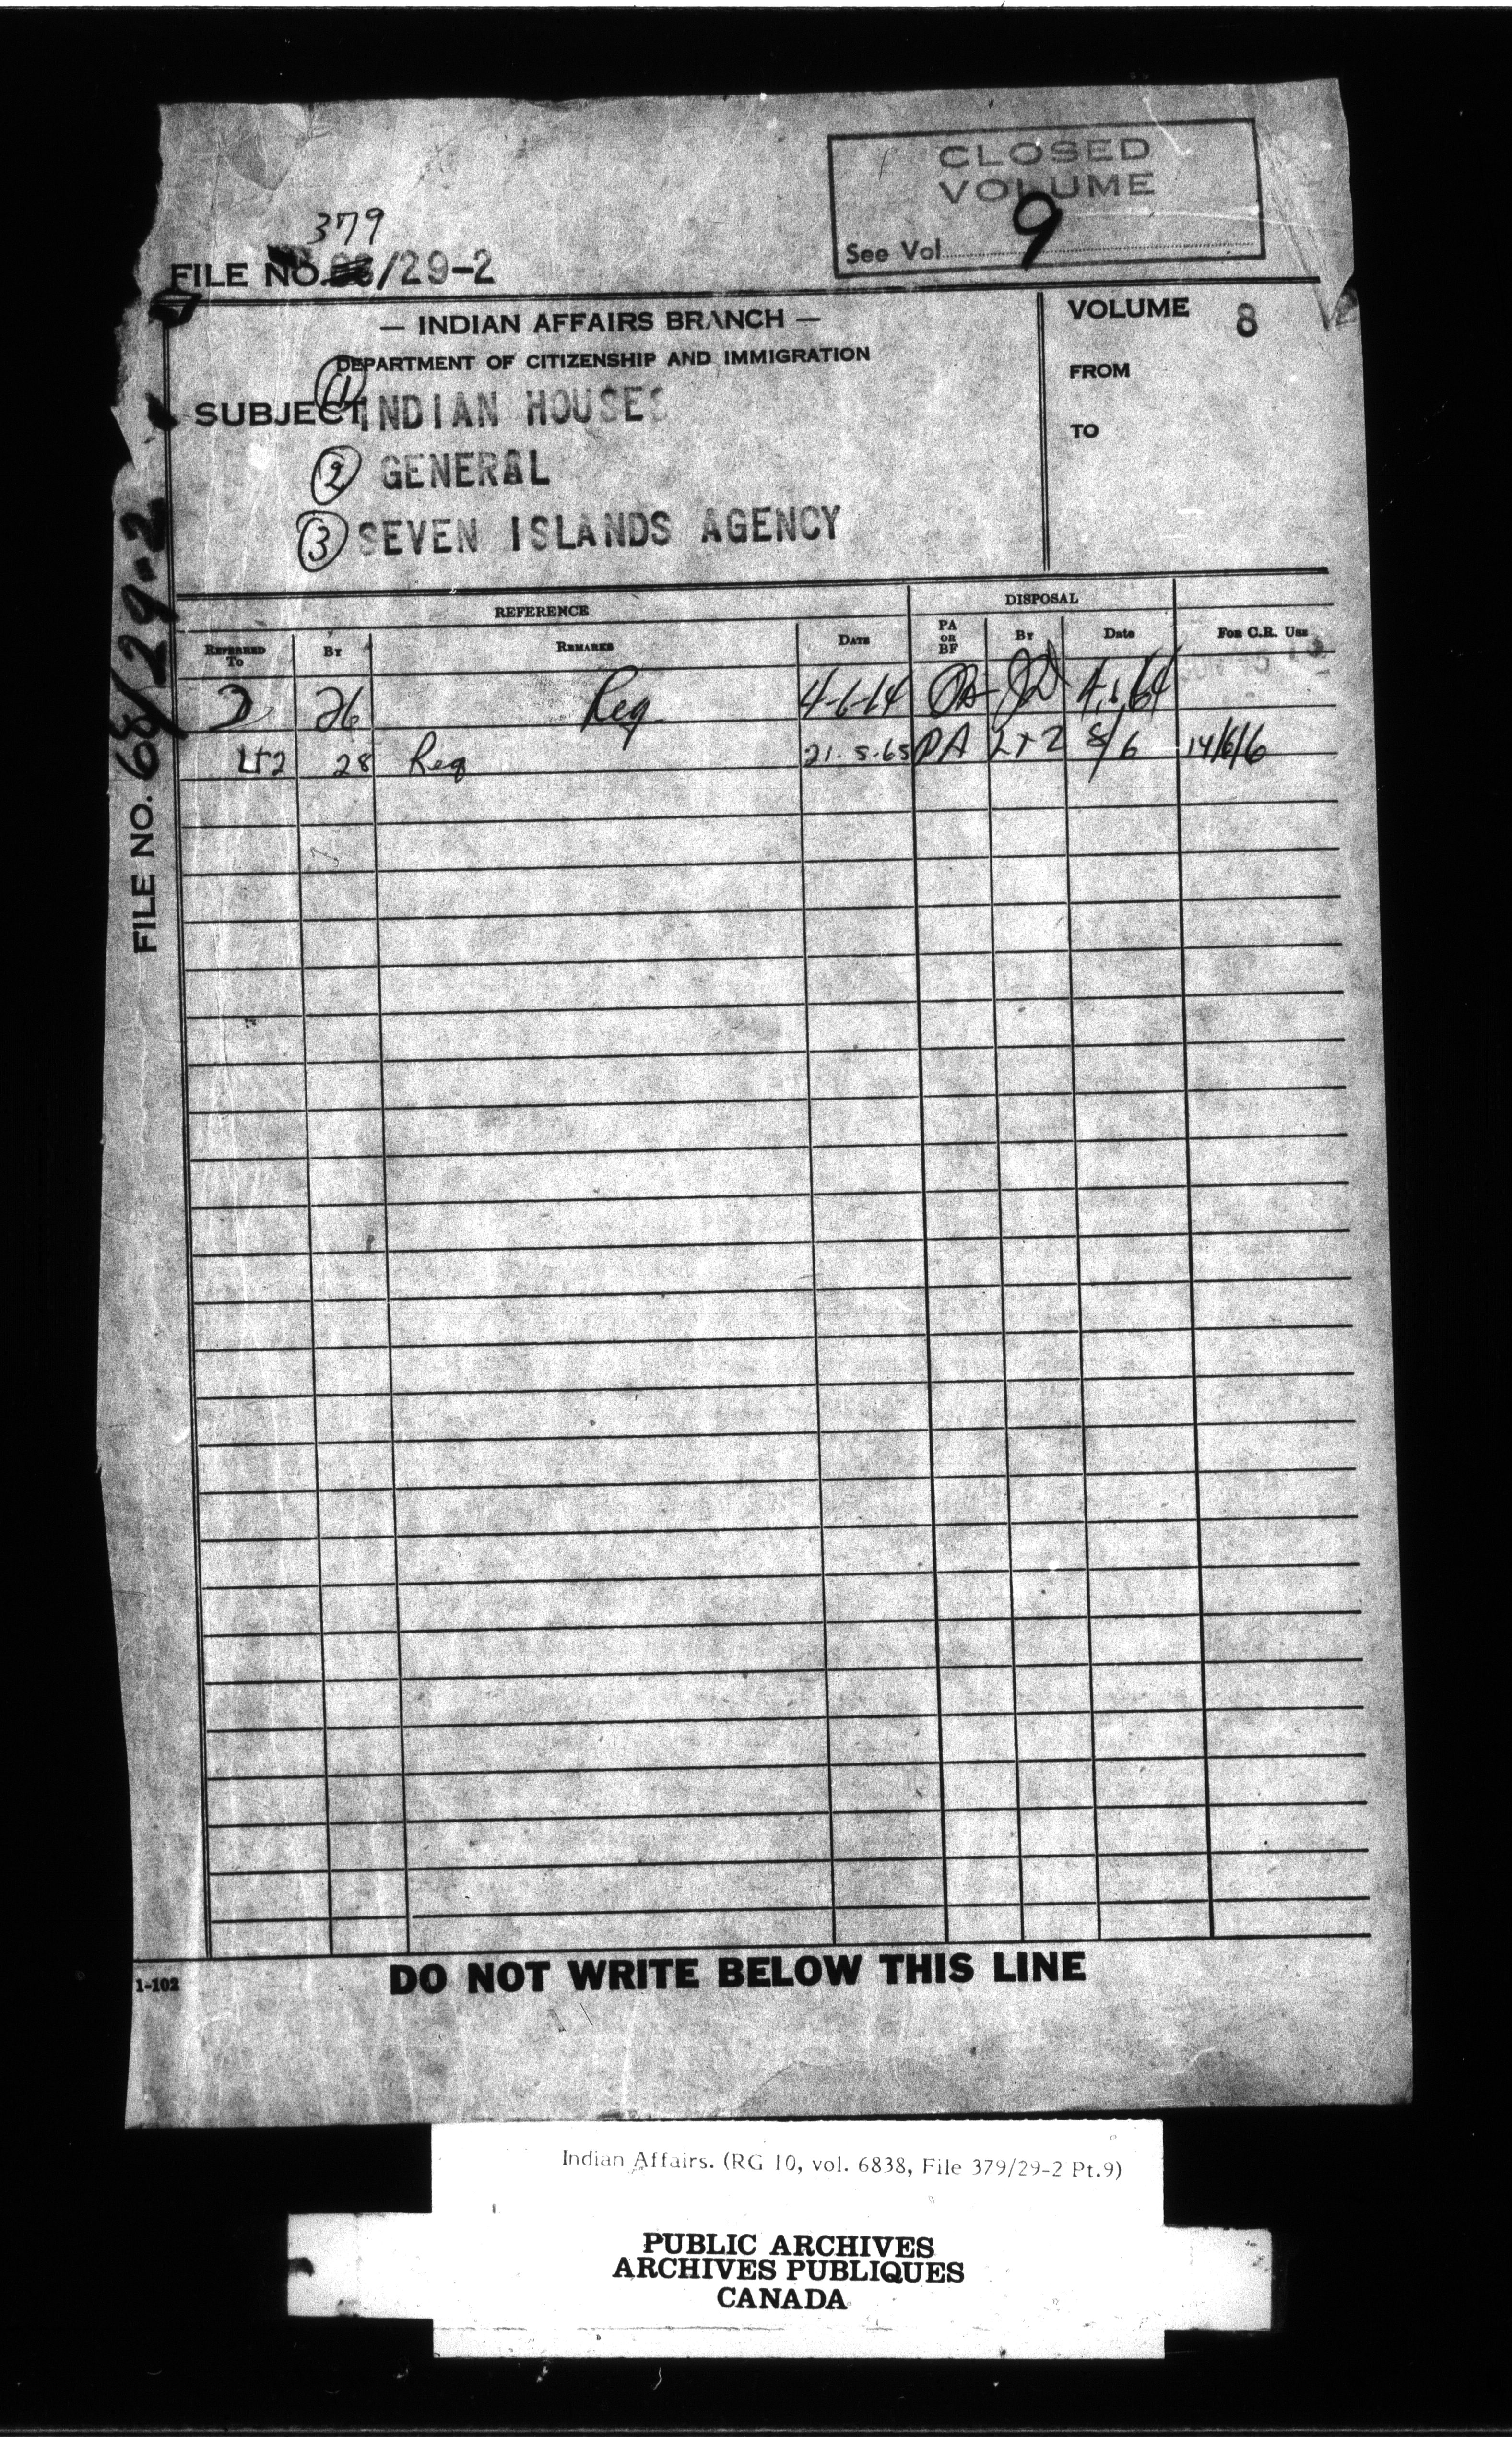 CLOSED
VOLUME
See Vol 9
379
FILE NO. /29-2
— INDIAN AFFAIRS BRANCH —
DEPARTMENT OF CITIZENSHIP AND IMMIGRATION
VOLUME 8
FROM
TO
SUBJECT (1) INDIAN HOUSES
(2) GENERAL
(3) SEVEN ISLANDS AGENCY
FILE NO. 68/29-2
REFERENCE DISPOSAL
REFERRED TO BY REMARKS DATE PA OR BF BY Date FOR C.R. USE
2 26 Req 4-6-64 PA 4.6.64
LT2 28 Req 21.5.65 PA LT2 8/6 14/6/6
1-102
DO NOT WRITE BELOW THIS LINE
Indian Affairs. (RG 10, vol. 6838, File 379/29-2 Pt.9)
PUBLIC ARCHIVES
ARCHIVES PUBLIQUES
CANADA